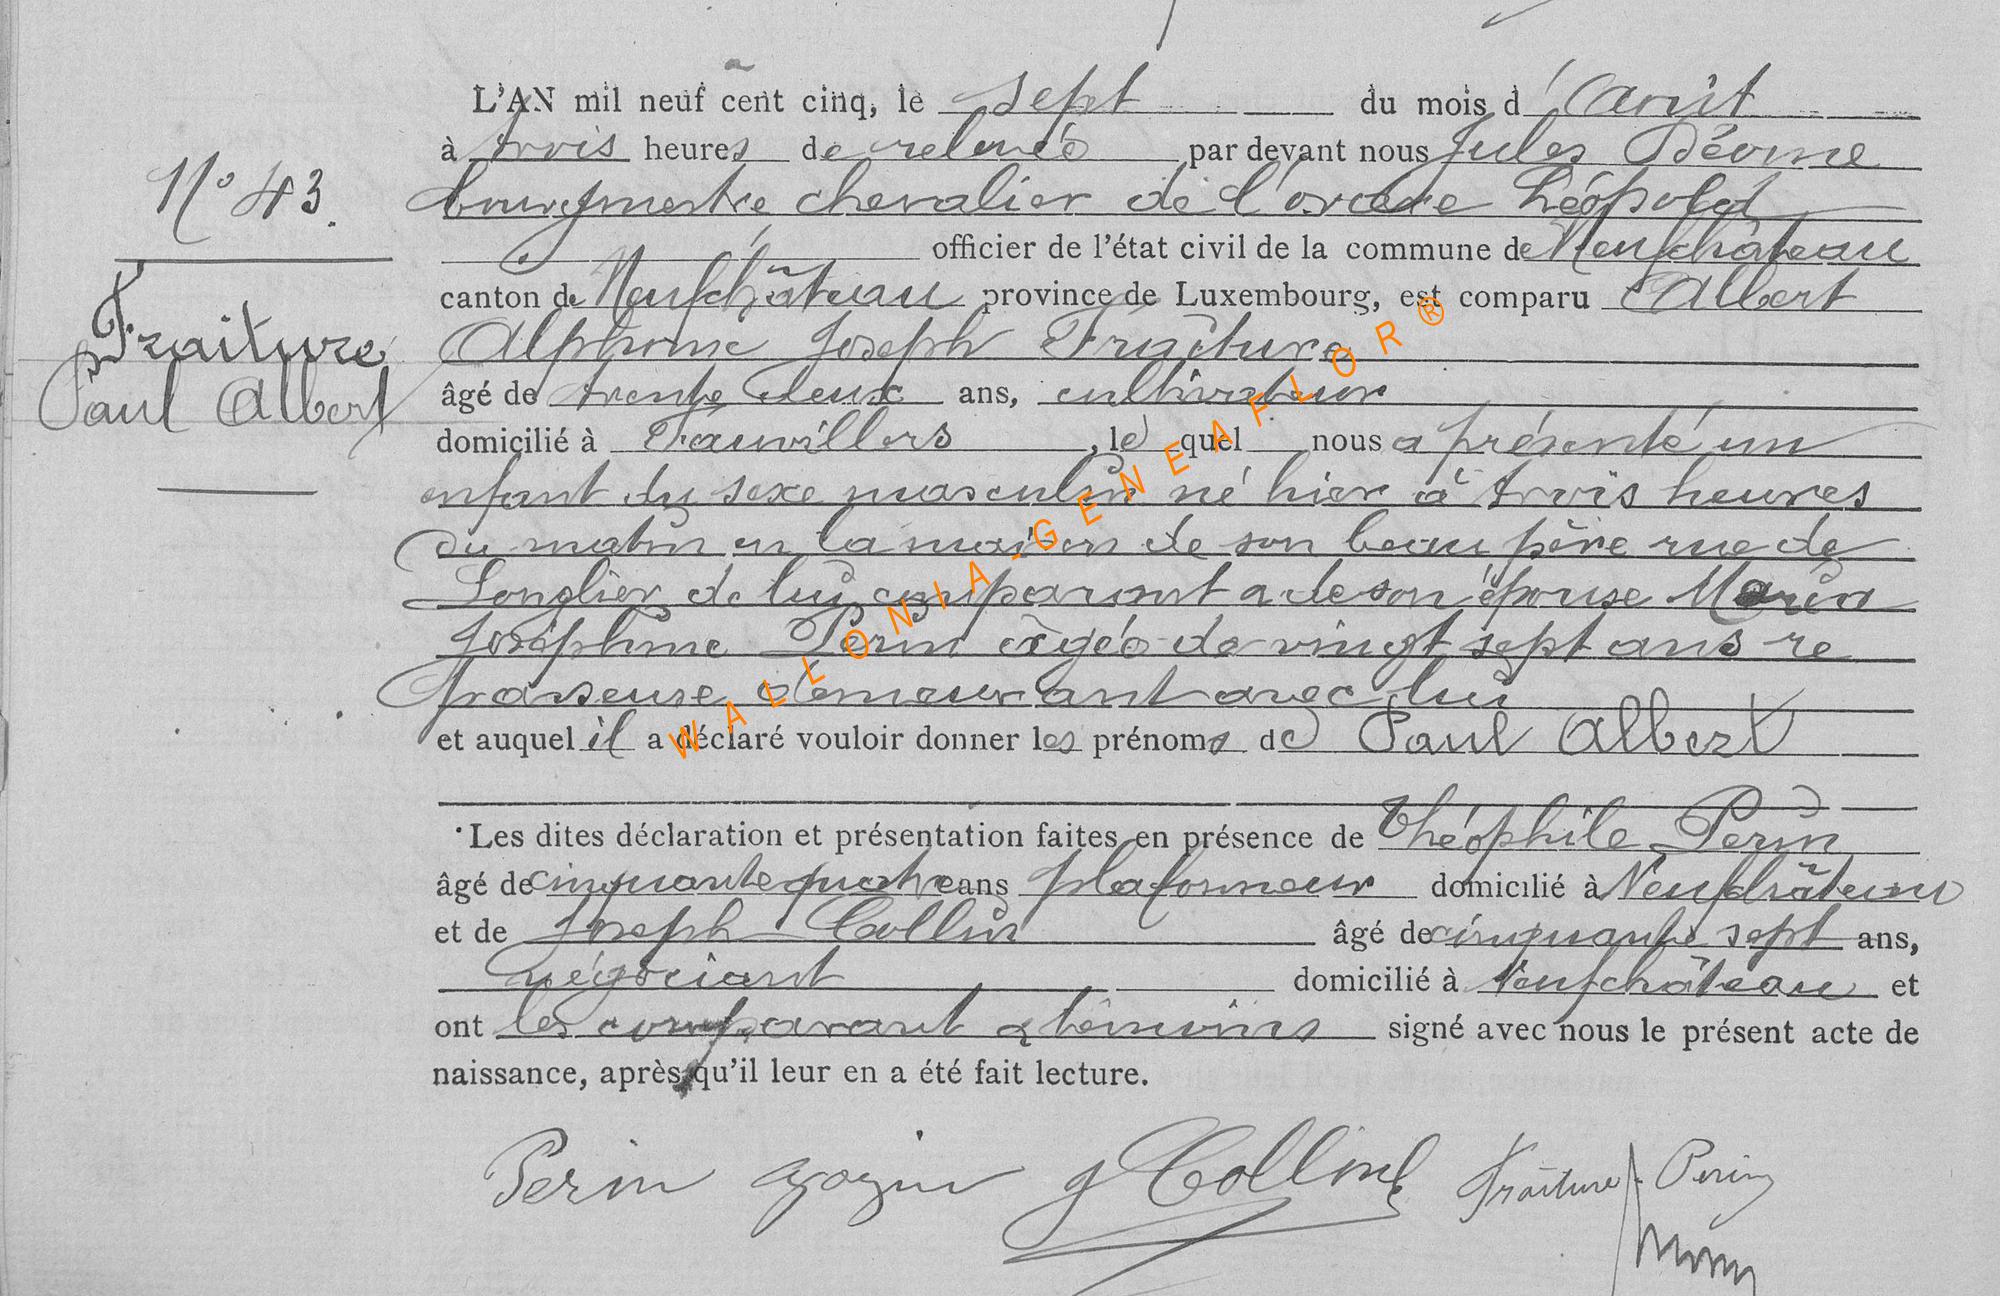 L'AN mil neuf cent cinq, le sept du mois d'août
à trois heures de relevée par devant nous Jules
bourgmestre chevalier de l'ordre Léopold
officier de l'état civil de la commune de Neufchâteau
canton de Neufchâteau province de Luxembourg, est comparu Albert
N° 43.
Alphonse Joseph Fraiture
Fraiture
Paul Albert
âgé de trente deux ans, cultivateur
domicilié à Fauvillers, le quel nous a présenté un
enfant du sexe masculin né hier à trois heures
du matin en la maison de son beau père rue de
Longlier de lui comparant & de son épouse Maria
Joséphine Perin âgée de vingt sept ans re
passeuse demeurant avec lui
et auquel il a déclaré vouloir donner les prénoms de Paul Albert
Les dites déclaration et présentation faites en présence de Théophile Perin
âgé de cinquante quatre ans plafonneur domicilié à Neufchâteau
et de Joseph Collin âgé de cinquante sept ans,
négociant domicilié à Neufchâteau et
ont les comparant & témoins signé avec nous le présent acte de
naissance, après qu'il leur en a été fait lecture.
Perin J Collin Fraiture-Perin
WALLONIA-GENEAFLOR®